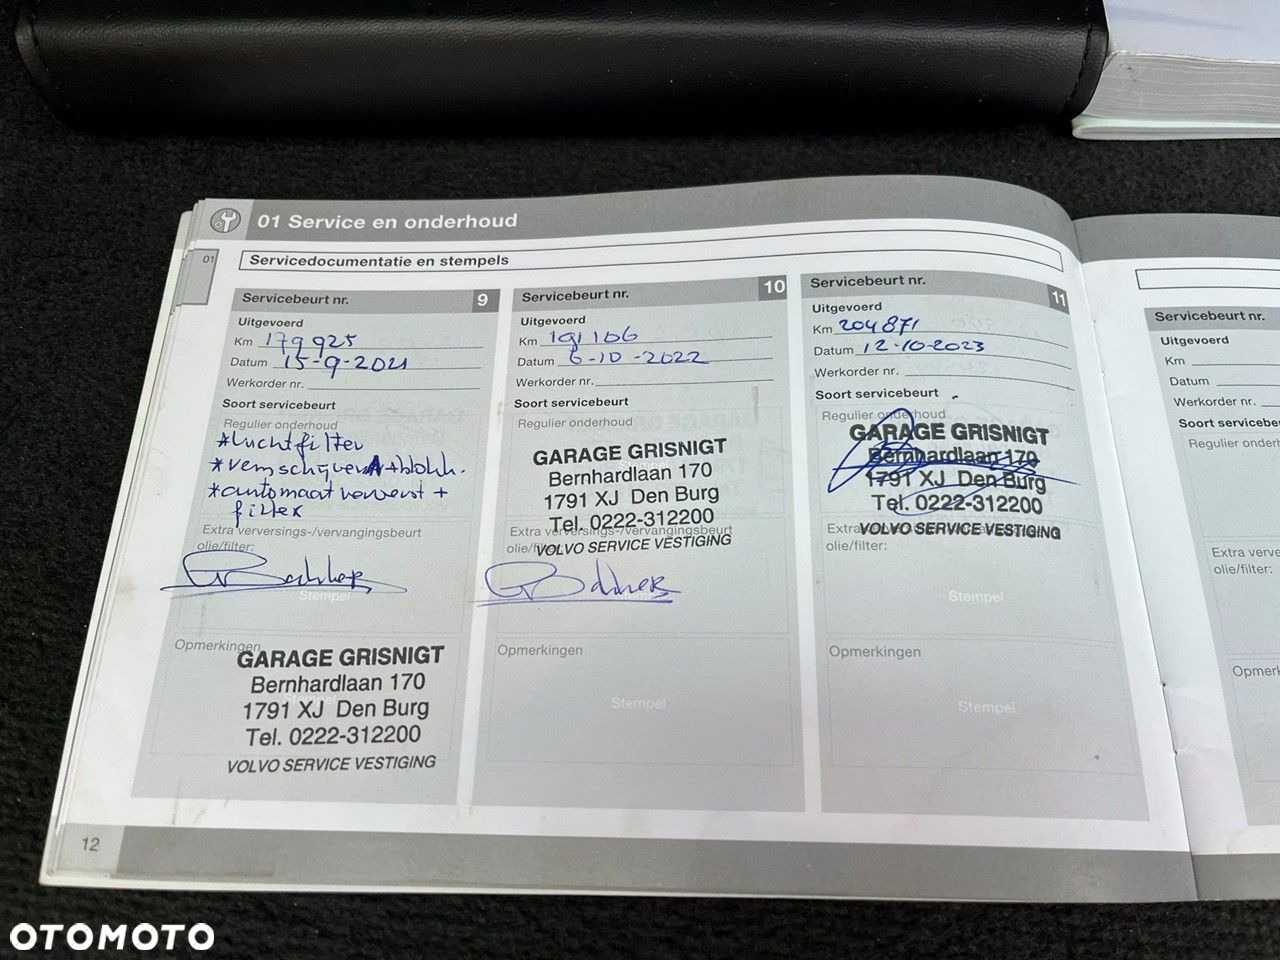 01 Service en onderhoud
01
Servicedocumentatie en stempels
Servicebeurt nr. 9
Uitgevoerd
Km 179925
Datum 15-9-2021
Werkorder nr.
Soort servicebeurt
Regulier onderhoud
*Luchtfilter
*remschijven A+blokk.
*automaat ververst +
filter
Extra verversings-/vervangingsbeurt
olie/filter:
Stempel
Opmerkingen
GARAGE GRISNIGT
Bernhardlaan 170
1791 XJ Den Burg
Tel. 0222-312200
VOLVO SERVICE VESTIGING
12
Servicebeurt nr. 10
Uitgevoerd
Km 191106
Datum 6-10-2022
Werkorder nr.
Soort servicebeurt
Regulier onderhoud
GARAGE GRISNIGT
Bernhardlaan 170
1791 XJ Den Burg
Tel. 0222-312200
Extra verversings-/vervangingsbeurt
olie/filter:
VOLVO SERVICE VESTIGING
Opmerkingen
Stempel
Servicebeurt nr. 11
Uitgevoerd
Km 204871
Datum 12-10-2023
Werkorder nr.
Soort servicebeurt
Regulier onderhoud
GARAGE GRISNIGT
Bernhardlaan 170
1791 XJ Den Burg
Tel. 0222-312200
Extra
VOLVO SERVICE VESTIGING
olie/filter:
Stempel
Opmerkingen
Stempel
Servicebeurt nr.
Uitgevoerd
Km
Datum
Werkorder nr.
Soort servicebeu
Regulier onderho
Extra verve
olie/filter:
Opmerk
OTOMOTO